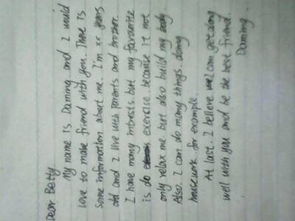 Dear Betty
My name is Daming and I would
love to make friend with you. There is
some information about me. I'm xx years
old and I live with parents and brother.
I have many interests but my favourite
is do exercise because it not
only relax me but also build my body
Also. I can do many things. doing
housework for example.
At last. I believe we can get along
well with you and be the best friend.
Daming